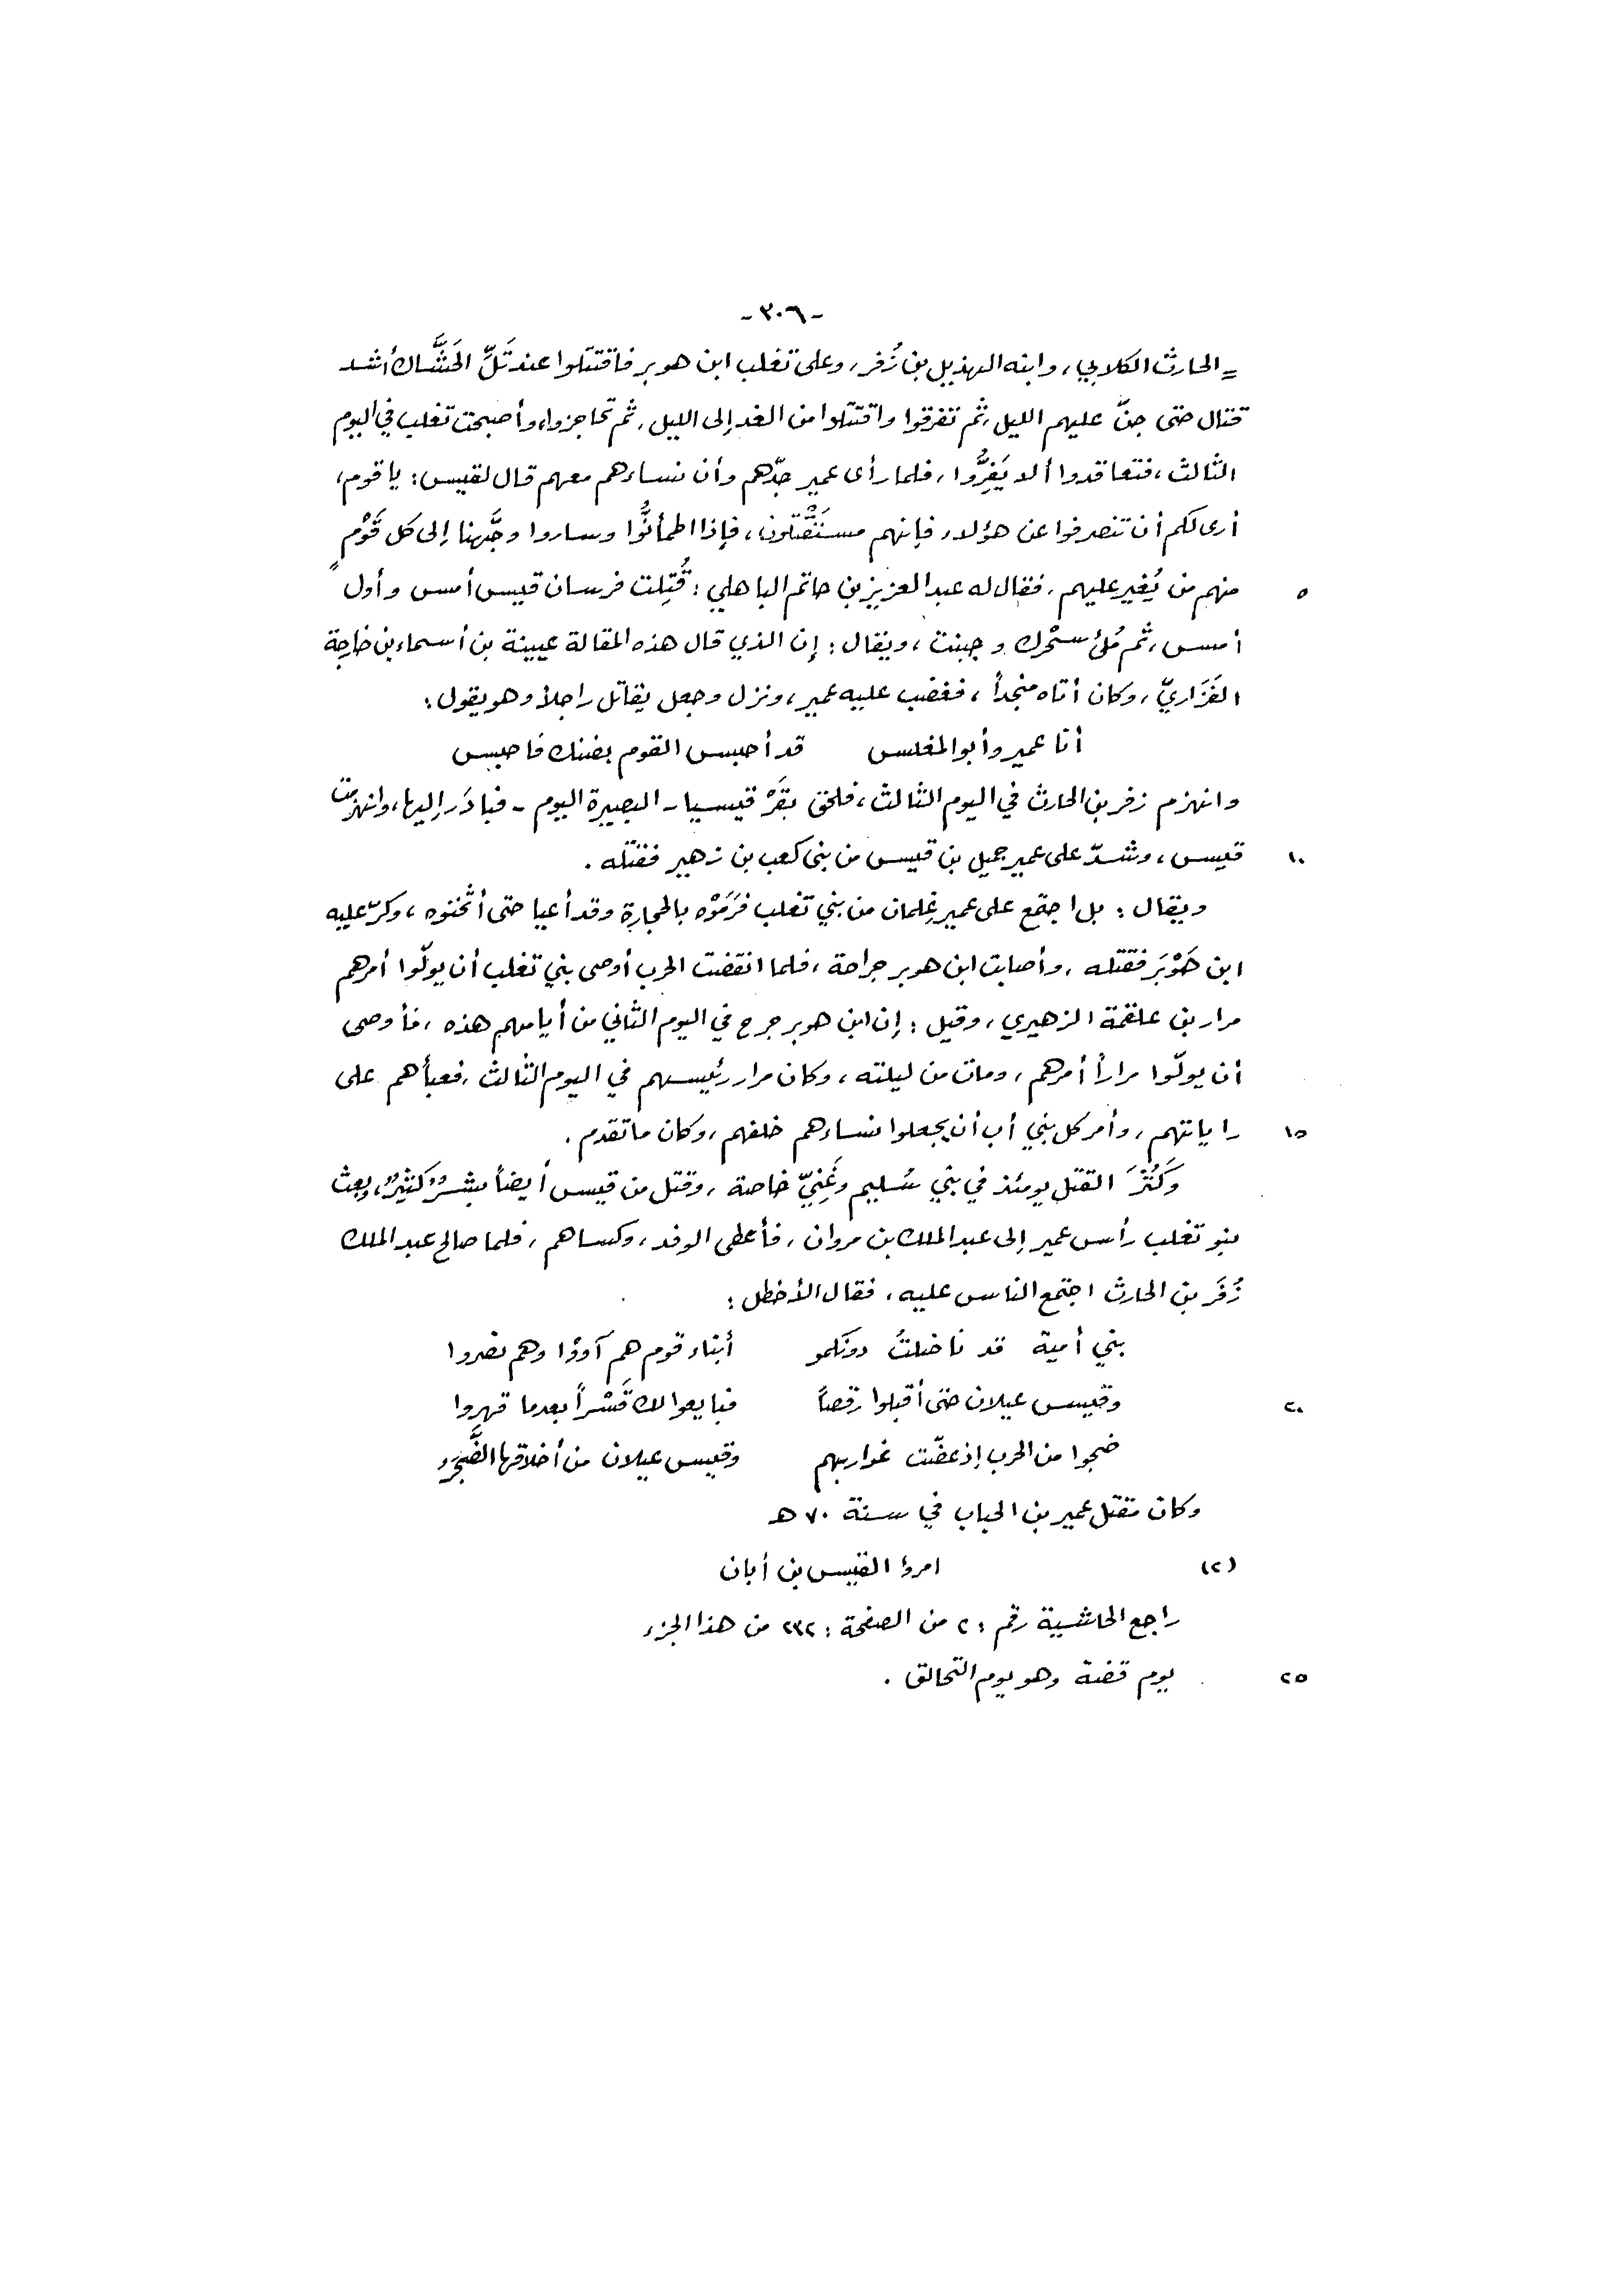 -٣٠٦-
= الحارث الكلابي، وابنه الهذيل بن زُفر، وعلى تغلب ابن هوبر فاقتتلوا عند تَلِّ الحَشَّاك أشد
قتال حتى جنّ عليهم الليل، ثم تفرقوا واقتتلوا من الغد إلى الليل، ثم تحاجزوا، وأصبحت تغلب في اليوم
الثالث، فتعاقدوا ألا يَفِرُّوا، فلما رأى عمير جِدّهم وأن نساءهم معهم قال لقيس: يا قوم،
أرى لكم أن تنصرفوا عن هؤلاء فإنهم مستَقْتِلون، فإذا اطمأنُّوا وساروا وجَّهنا إلى كل قَوْمٍ
٥ منهم من يُغير عليهم، فقال له عبد العزيز بن حاتم الباهلي: قُتِلت فرسان قيس أمس وأول
أمس، ثم مُلئ سَحْرك وجبنت، ويقال: إن الذي قال هذه المقالة عيينة بن أسماء بن خارجة
الفَزَاريّ، وكان أتاه منجداً، فغضب عليه عمير، ونزل وجعل يقاتل راجلاً وهو يقول:
أنا عمير وأبو المغلس قد أحبس القوم بضنك فاحبس
وانهزم زفر بن الحارث في اليوم الثالث، فلحق بقَرْقيسيا - البصيرة اليوم - فبادَر إليها، وانهزمت
١٠ قيس، وشدّ على عمير جميل بن قيس من بني كعب بن زهير فقتله.
ويقال: بل اجتمع على عمير غِلمان من بني تغلب فرَمَوْه بالحجارة وقد أعيا حتى أثخنوه، وكرّ عليه
ابن هَوْبَر فقتله، وأصابت ابن هوبر جراحة، فلما انقضت الحرب أوصى بني تغلب أن يولّوا أمرهم
مرار بن علقمة الزهيري، وقيل: إن ابن هوبر جرح في اليوم الثاني من أيامهم هذه، فأوصى
أن يولّوا مراراً أمرهم، ومات من ليلته، وكان مرار رئيسهم في اليوم الثالث، فعبأهم على
١٥ راياتهم، وأمر كل بني أب أن يجعلوا نساءهم خلفهم، وكان ما تقدم.
وَكَثُرَ القتل يومئذ في بني سُليم وغَنِيّ خاصة، وقتل من قيس أيضاً بشرٌ كثيرٌ، وبعث
بنو تغلب رأس عمير إلى عبد الملك بن مروان، فأعطى الوفد، وكساهم، فلما صالح عبد الملك
زُفَر بن الحارث اجتمع الناس عليه، فقال الأخطل:
بني أمية قد ناضلتُ دونَكمو أبناء قوم هم آووْا وهم نصروا
٢٠ وقيس عيلان حتى أقبلوا رقصاً فبايعوا لك قَسْراً بعدما قهروا
ضجوا من الحرب إذ عضّت غواربهم وقيس عيلان من أخلاقها الضَّجَرُ
وكان مقتل عمير بن الحباب في سنة ٧٠ هـ
(٢) امرؤ القيس بن أبان
راجع الحاشية رقم: ٢ من الصفحة: ٢٣٢ من هذا الجزء
٢٥ يوم قضة وهو يوم التحالق.